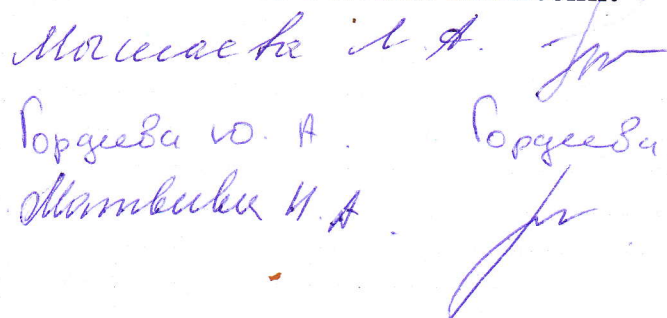 Мышаева Л. А.
Гордеева Ю. А. Гордеева
Матвеева Н. А.